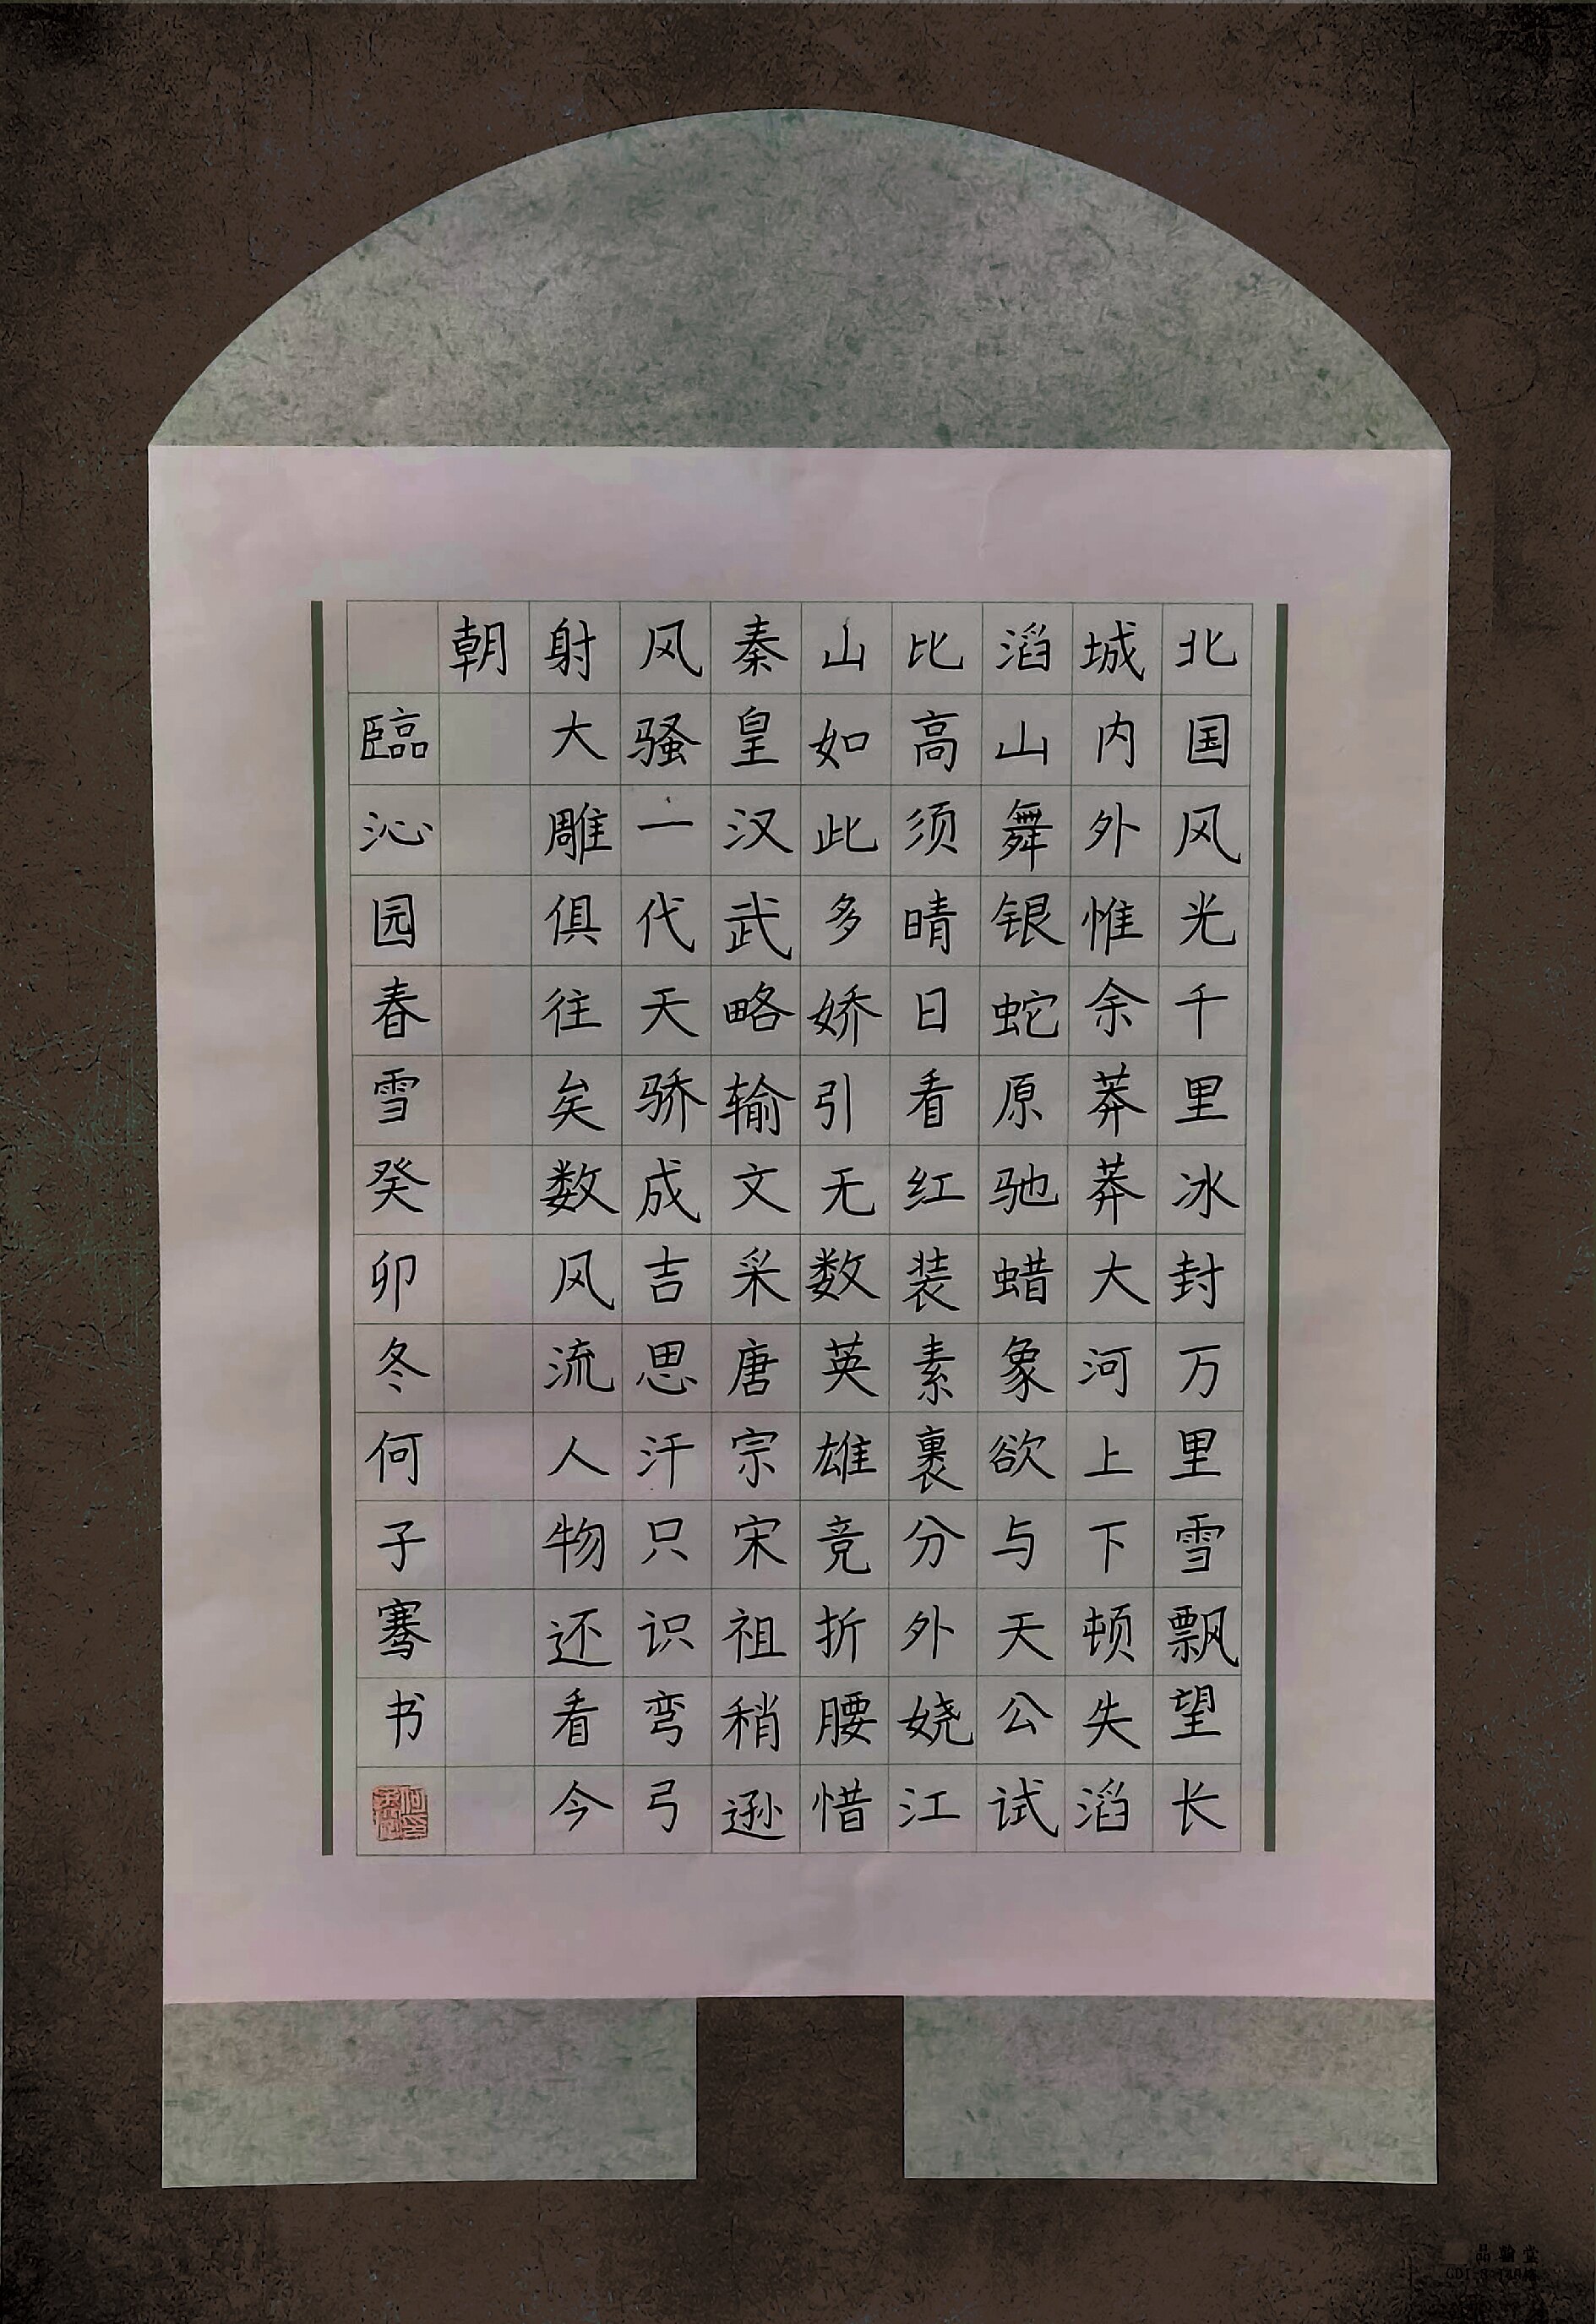 北国风光千里冰封万里雪飘望长
城内外惟余莽莽大河上下顿失滔
滔山舞银蛇原驰蜡象欲与天公试
比高须晴日看红装素裹分外娆江
山如此多娇引无数英雄竞折腰惜
秦皇汉武略输文采唐宗宋祖稍逊
风骚一代天骄成吉思汗只识弯弓
射大雕俱往矣数风流人物还看今
朝
臨沁园春雪癸卯冬何子骞书
品翰堂